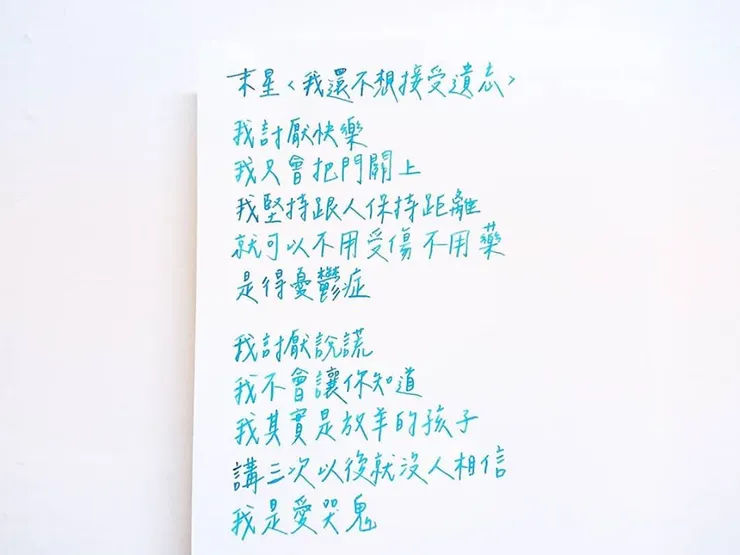 末星〈我還不想接受遺忘〉
我討厭快樂
我只會把門關上
我堅持跟人保持距離
就可以不用受傷不用藥
是得憂鬱症
我討厭說謊
我不會讓你知道
我其實是放羊的孩子
講三次以後就沒人相信
我是愛哭鬼